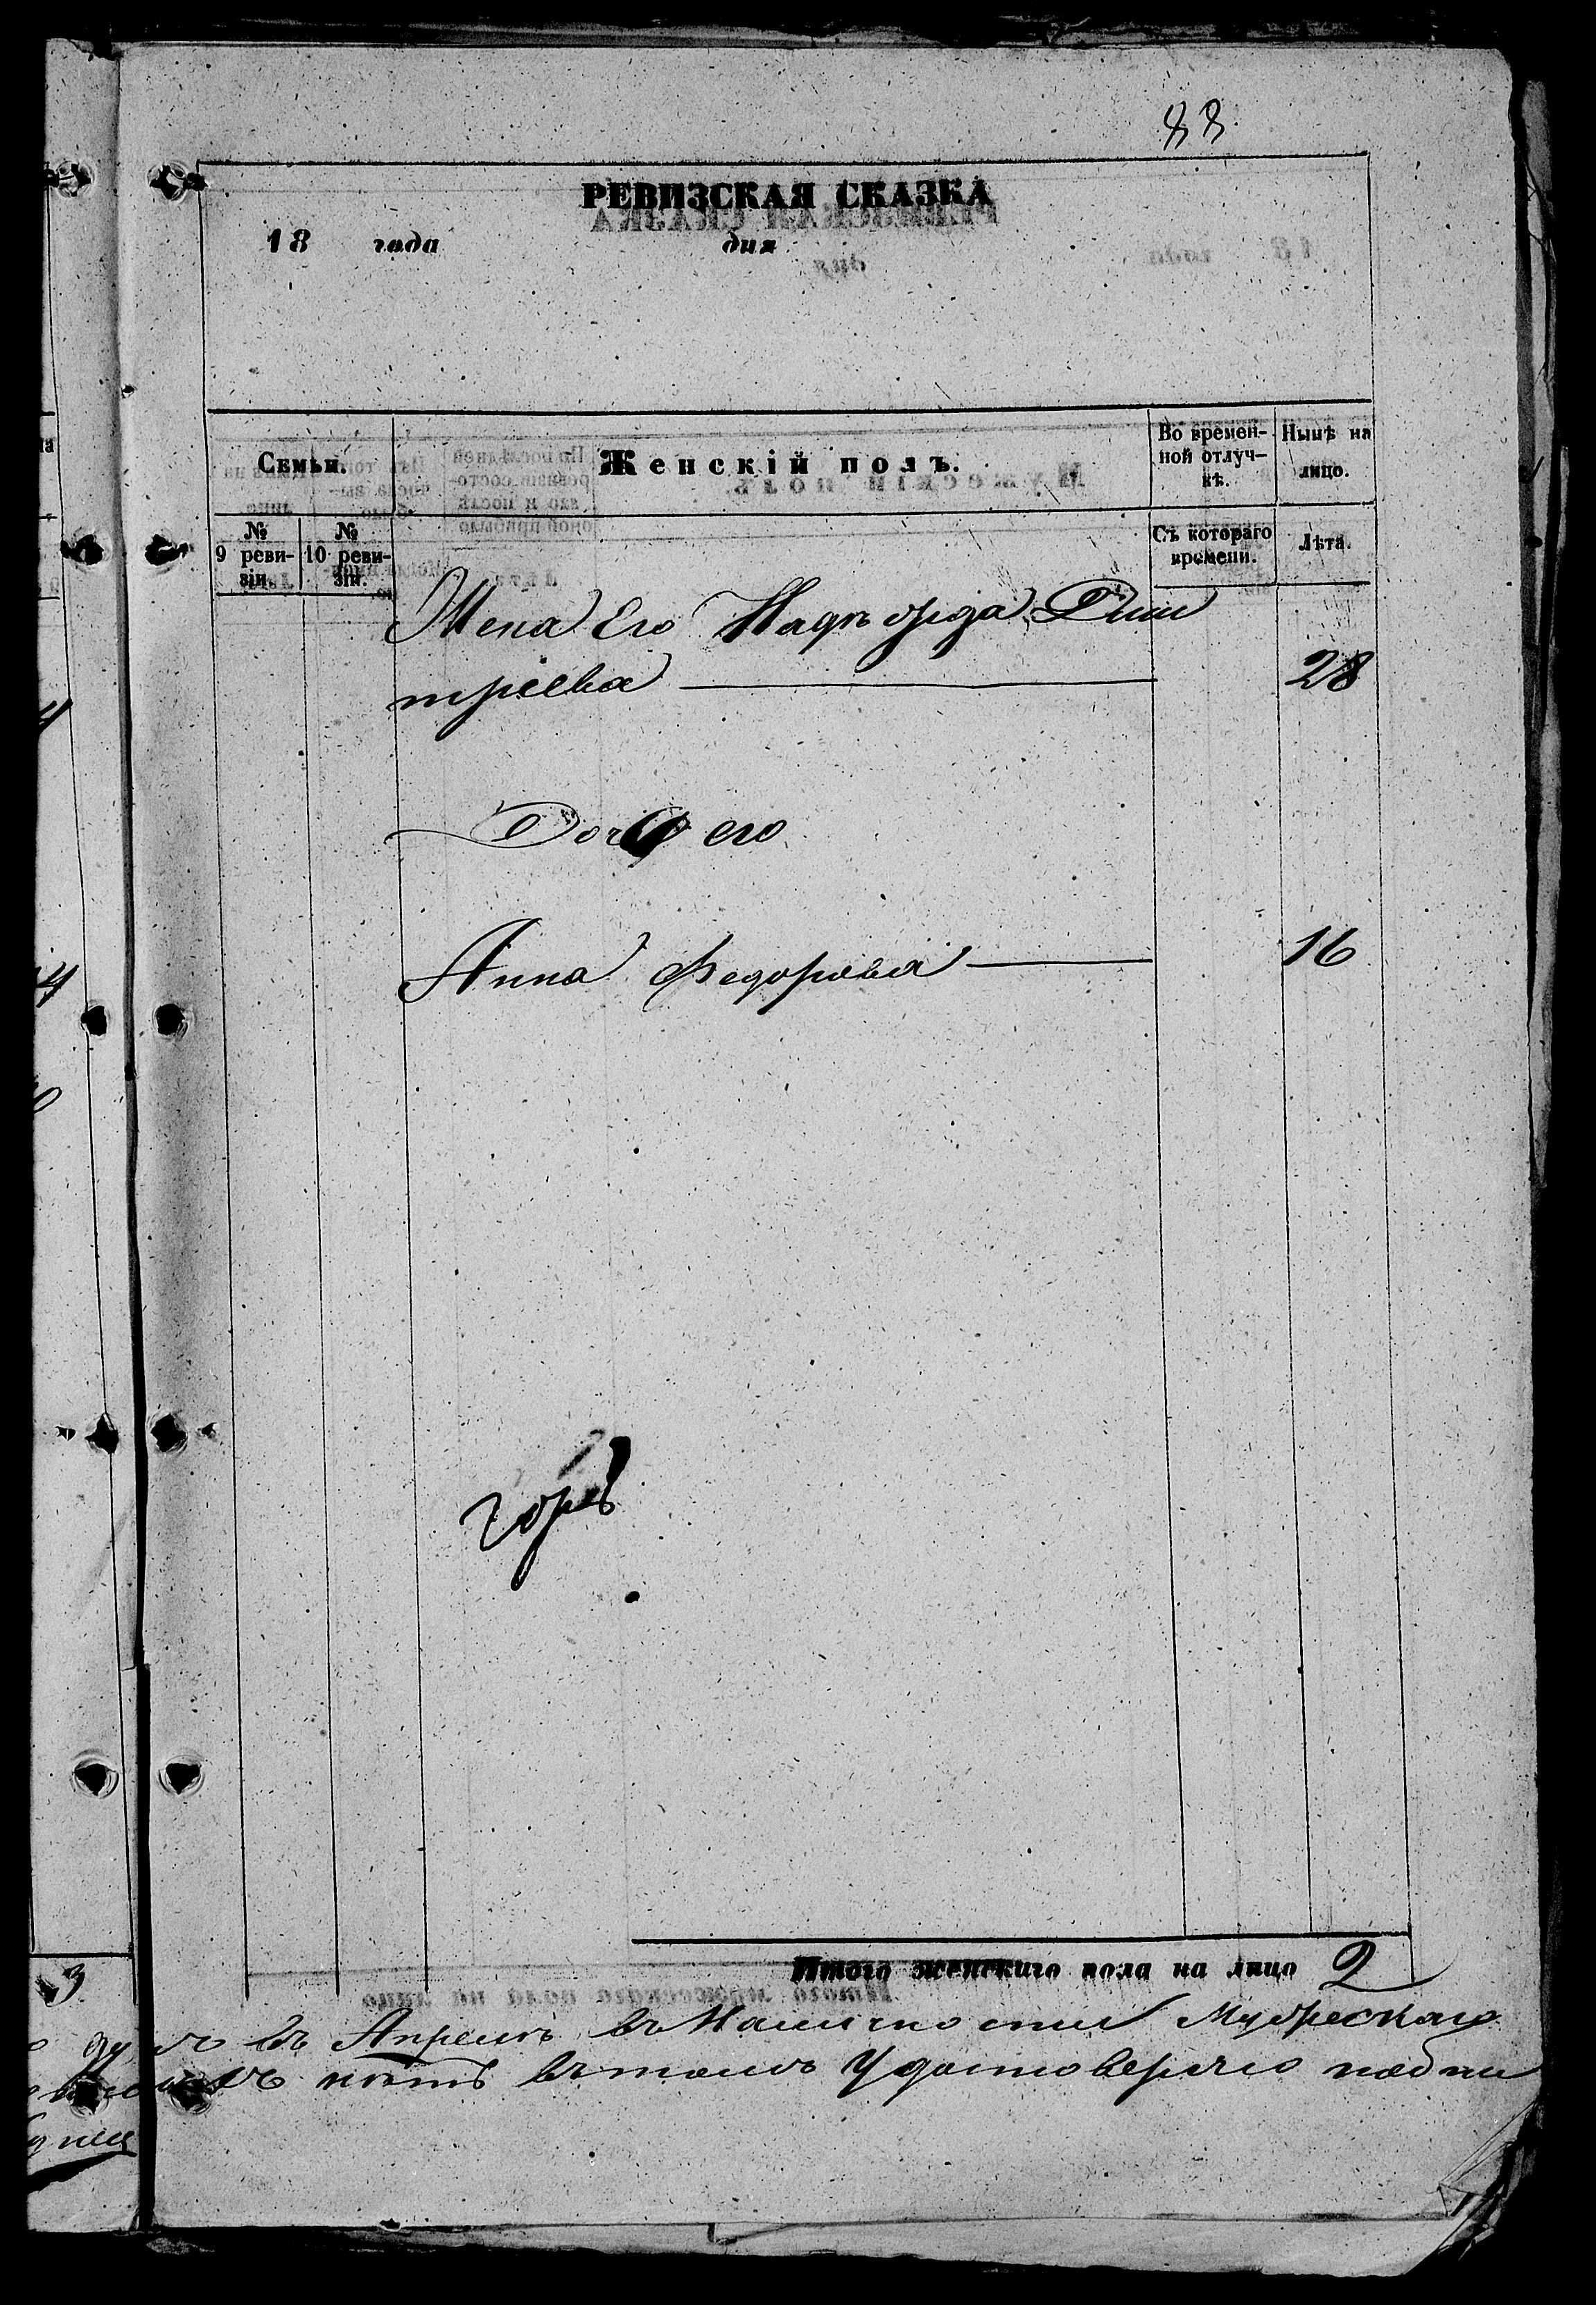 88
РЕВИЗСКАЯ СКАЗКА
18 года дня
Семьи.
Женскій полъ.
Во времен-
ной отлуч-
кѣ.
Нынѣ на
лицо.
№
9 реви-
зіи.
№
10 реви-
зіи.
Съ котораго
времени.
Лѣта.
Жена Его Надѣжда Дми
тріева 28
Дочь его
Анна Федорова 16
Итого женскаго пола на лицо 2
3
въ Апрелѣ въ Наличности Мужескаго
нѣтъ въ томъ Удостоверяю